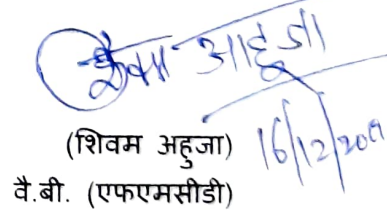 शिवम आहूजा
(शिवम अहुजा) 16/12/2019
वै.बी. (एफएमसीडी)